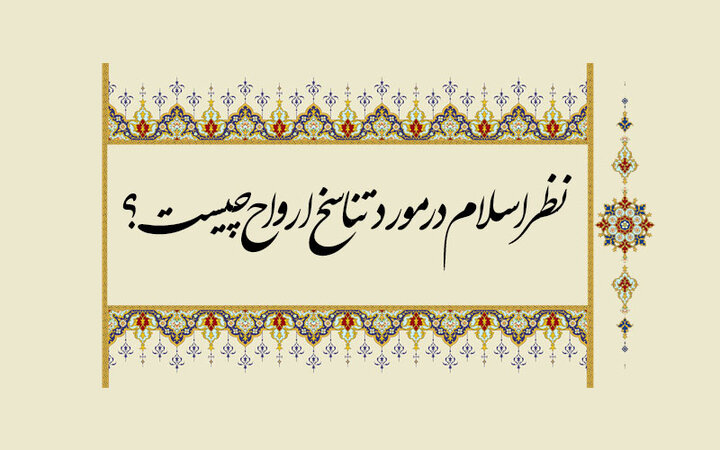 نظر اسلام در مورد تناسخ ارواح چیست؟